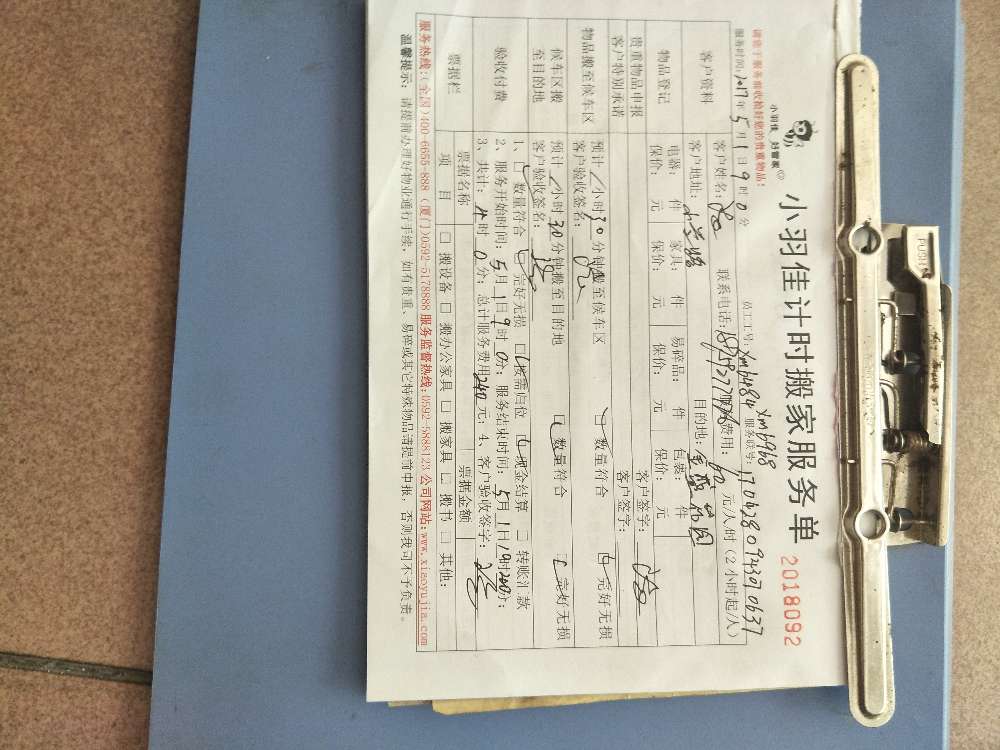 小羽佳 好管家®
小羽佳计时搬家服务单
2018092
请您于服务前收拾好您的贵重物品!
员工工号: xm6484 xm6968 服务联号: 170628094307 0637
服务时间: 2017年5月1日9时0分
客户资料
客户姓名: 联系电话: 费用: 60元/人/时(2小时起/人)
客户地址: 目的地:
物品登记
电器: 件 家具: 件 易碎品: 件 包裹: 件
保价: 元 保价: 元 保价: 元 保价: 元
贵重物品申报 客户签字:
客户特别承诺 客户签字:
物品搬至候车区
预计/小时30分钟搬至候车区 数量符合 完好无损
客户验收签名:
候车区搬至目的地
预计/小时30分钟搬至目的地 数量符合 完好无损
客户验收签名:
验收付费
1、数量符合 完好无损 按需归位 现金结算 □转账汇款
2、服务开始时间: 5月1日9时0分; 服务结束时间: 5月1日
3、共计: 4时0分; 总计服务费用240元; 4、客户验收签字:
票据栏
票据名称 票据金额
项目 □搬设备 □搬办公家具 □搬家具 □搬书 □其他:
服务热线:(全国)400-6655-888 (厦门)0592-5178888 服务监督热线:0592-5888123 公司网站:www.xiaoyujia.com
温馨提示: 请提前办理好物业通行手续, 如有贵重、易碎或其它特殊物品请提前申报, 否则我司不予负责。
PUSH